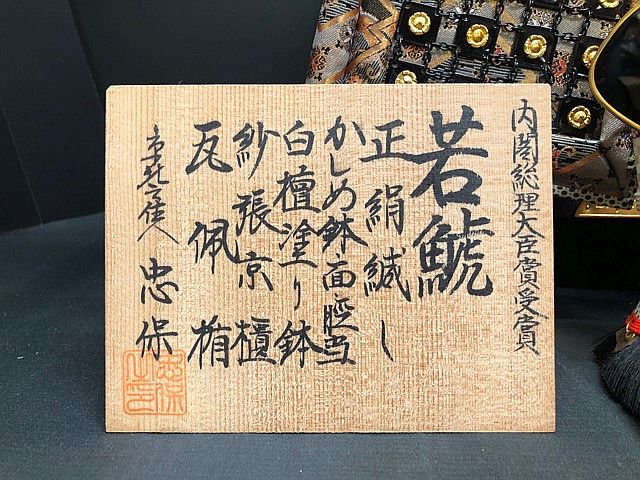 内閣総理大臣賞受賞
若鯱
正絹縅し
かしめ鉢・面脛当
白檀塗り鉢
紗張京櫃
瓦佩楯
忠保